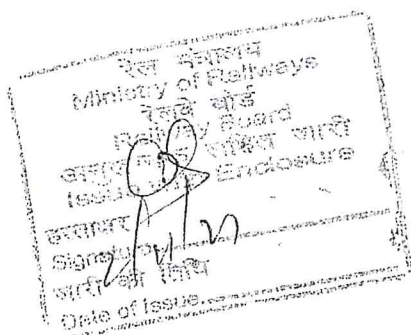 रेल मंत्रालय
Ministry of Railways
रेलवे बोर्ड
Railway Board
सहित जारी
Issu Enclosure
हस्ताक्षर
Signature
जारी की तिथि
Date of Issue